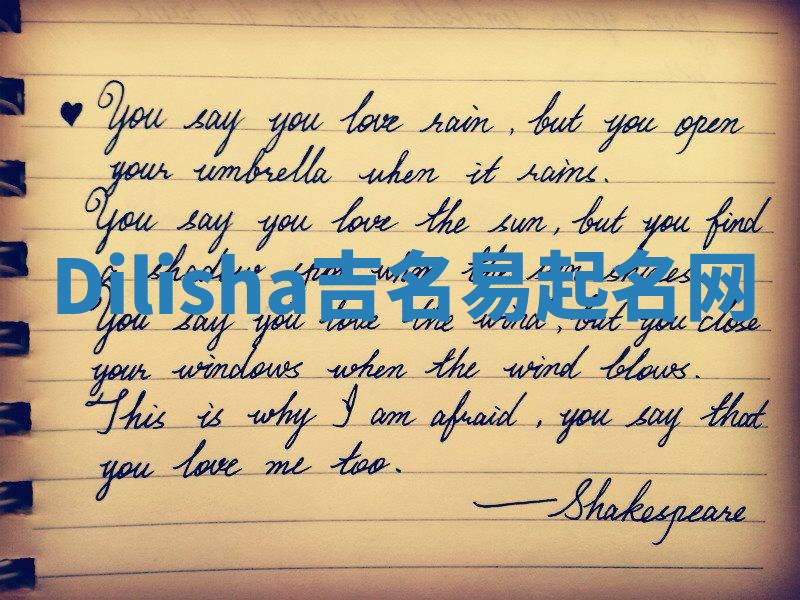 ♥ You say you love rain, but you open
your umbrella when it rains.
You say you love the sun, but you find
a shadow spot when the sun shines.
Dilisha吉名易起名网
You say you love the wind, but you close
your windows when the wind blows.
This is why I am afraid, you say that
you love me too.
—Shakespeare